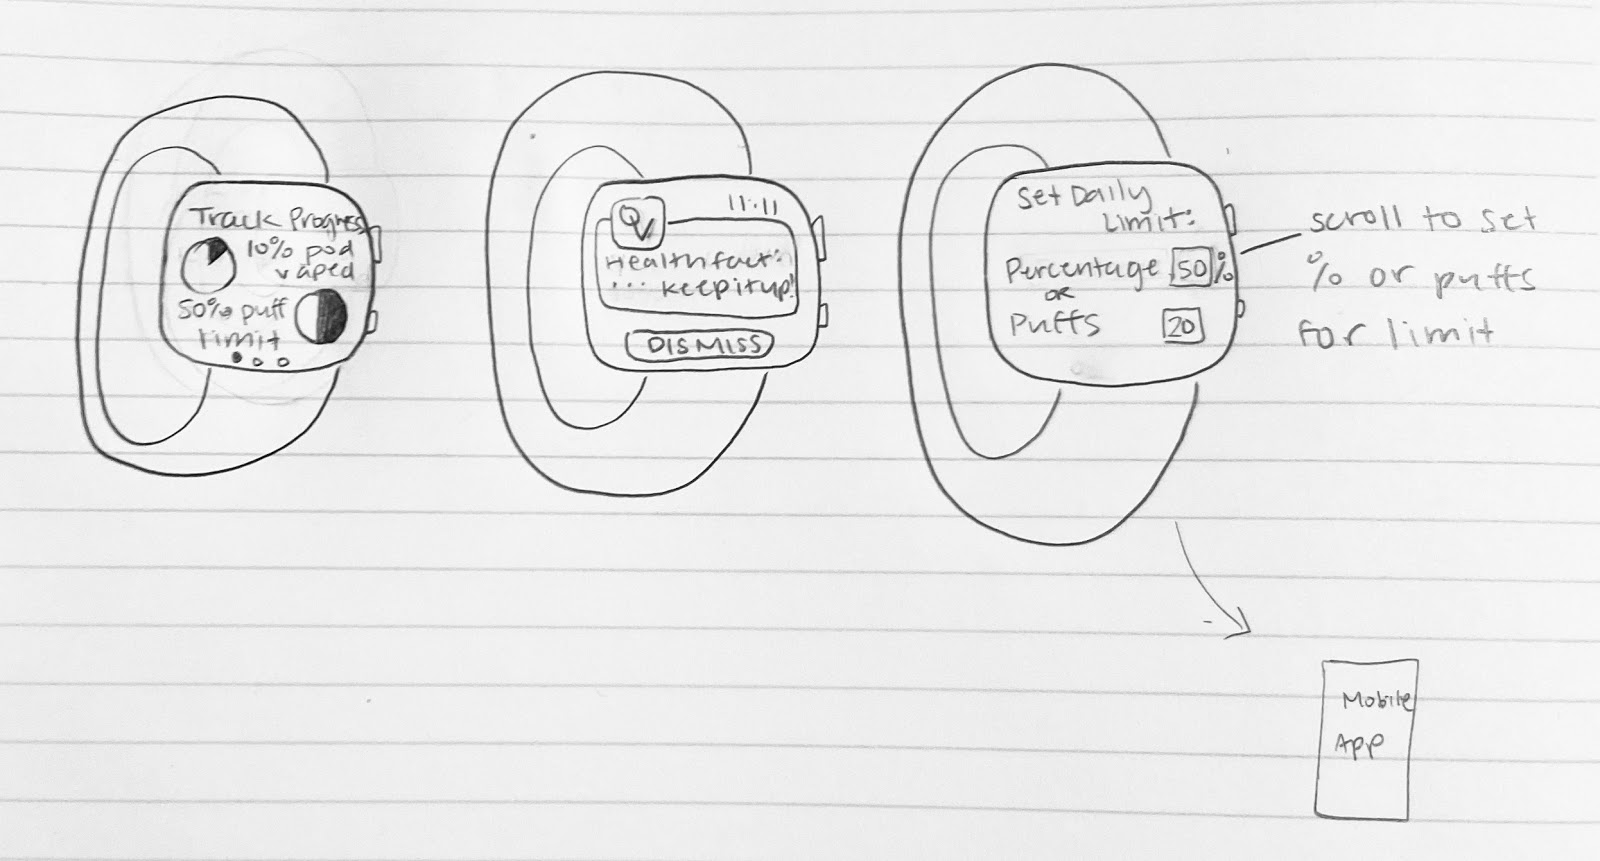 Track Progress
10% pod
vaped
50% puff
limit
QV
11:11
Health fact:
... keep it up!
DISMISS
Set Daily
Limit:
Percentage 50%
OR
Puffs 20
scroll to set
% or puffs
for limit
Mobile
App